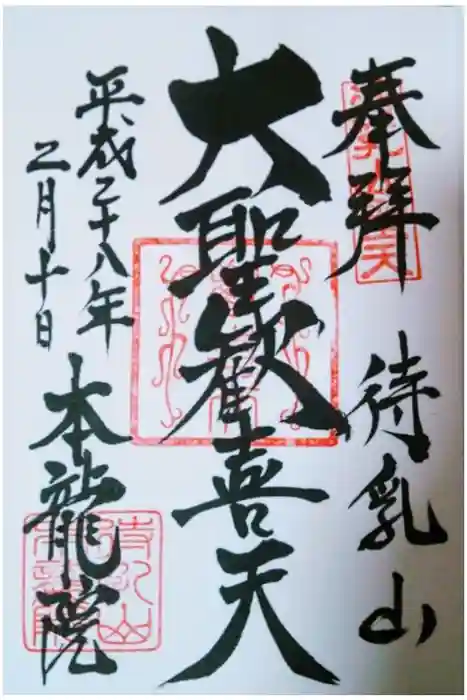 奉拝
待乳山
大聖歓喜天
平成二十八年
二月十日
本龍院